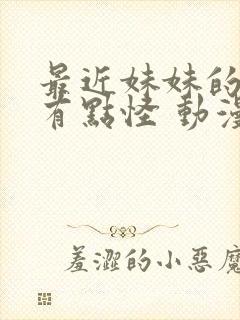 最近妹妹的
有點怪 動漫
羞澀的小惡魔